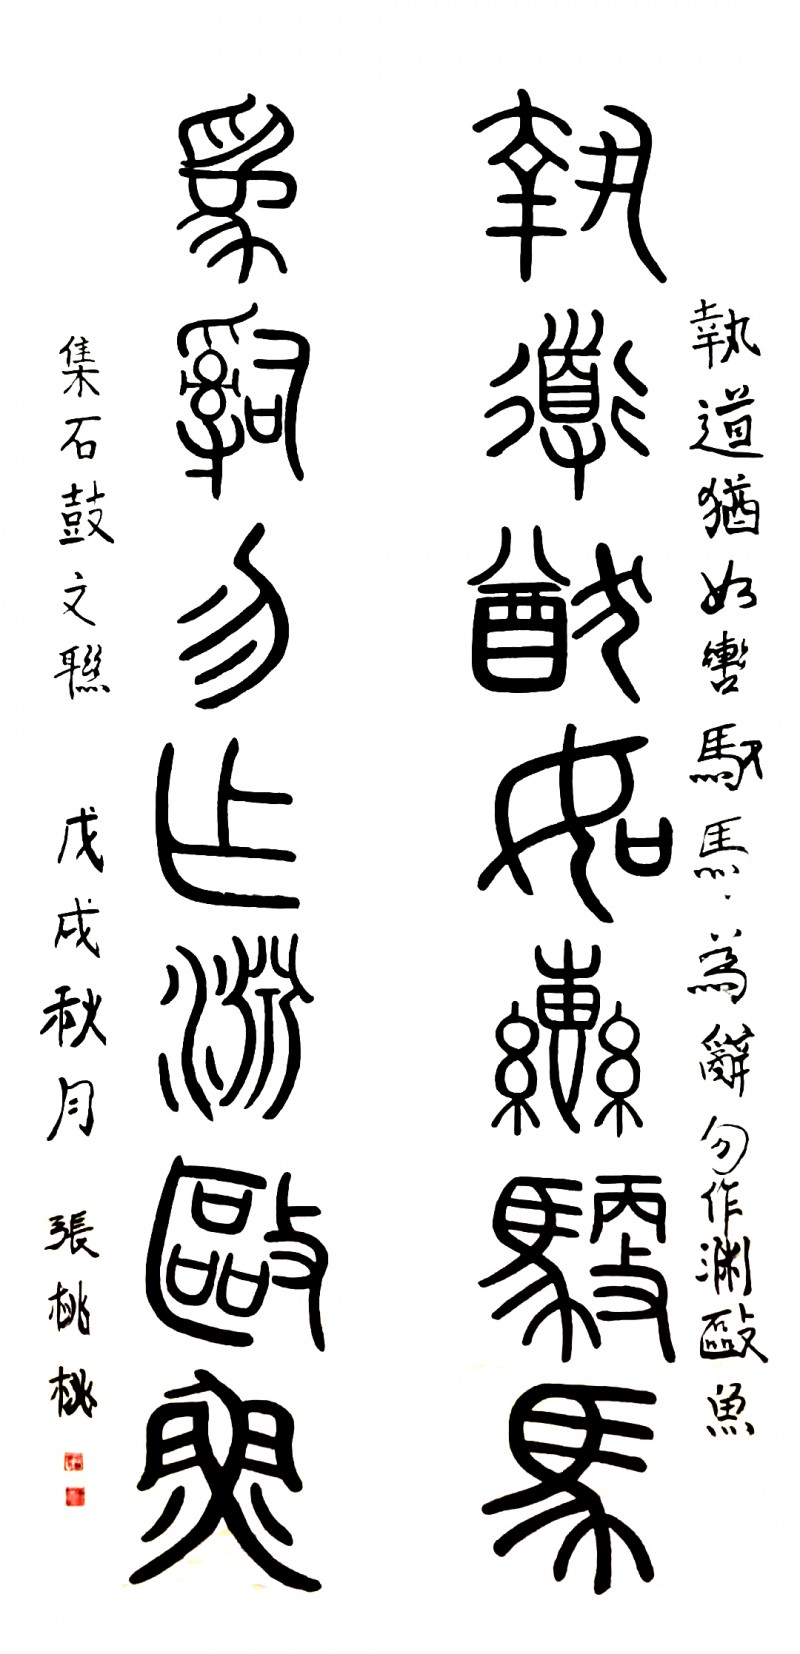 執道猶如轡馭馬、為辭勿作淵毆魚
執道猷如轡馭馬
為辭勿乍淵毆魚
集石鼓文聯 戊戌秋月 張桃桃